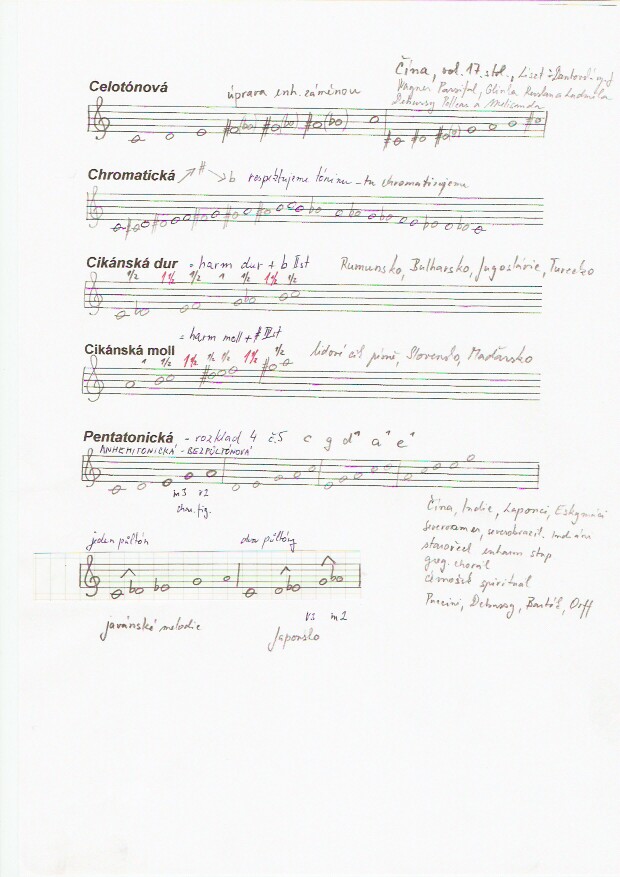 Čína, vol. 17. stol., Liszt - Dantovská
Celotónová úprava enh. záměnou Wagner Parsifal, Glinka Ruslan a Ludmila
Debussy Pelleas a Melisanda
Chromatická # b respektujeme tóninu - tu chromatizujeme
Cikánská dur = harm dur + b II st Rumunsko, Bulharsko, Jugoslávie, Turecko
1/2 1 1/2 1/2 1 1/2 1 1/2 1/2
= harm moll + # IV st
Cikánská moll 1 1/2 1 1/2 1/2 1/2 1 1/2 1/2 lidové cik. písně, Slovensko, Maďarsko
Pentatonická - rozklad 4 č.5 c g d¹ a¹ e²
ANHEMITONICKÁ - BEZPŮLTÓNOVÁ
m3 v2
Čína, Indie, Laponci, Eskymáci
severoamer, Indiáni
starořec enharm
greg. chorál
černošské spirituál
Puccini, Debussy, Bartók, Orff
jeden půltón dva půltóny
v3 m2
javánské melodie Japonsko